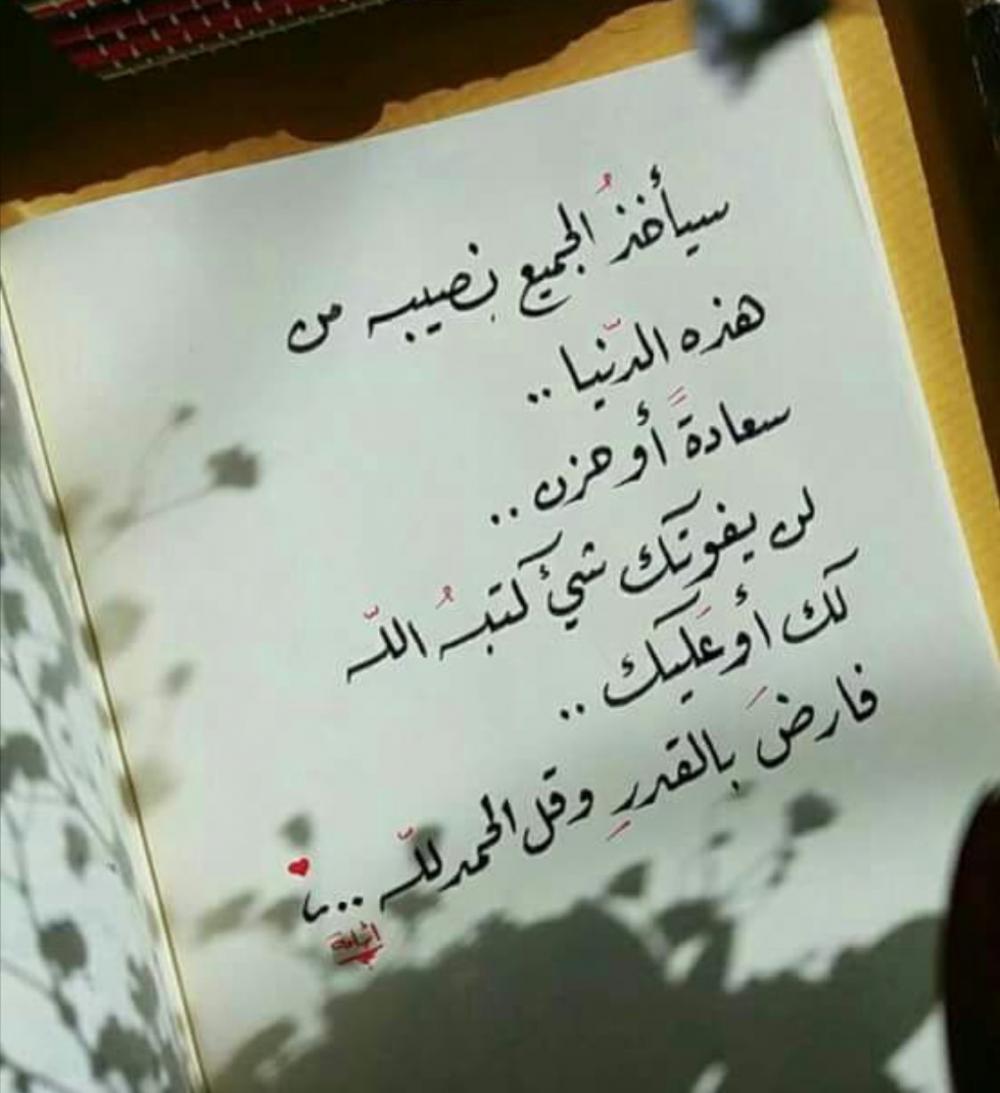 سيأخذُ الجميع نصيبه من
هذه الدّنيا ..
سعادةً أو حزن ..
لن يفوتك شيءٌ كتبهُ اللّه
لك أو عَليك ..
فارضَ بالقدرِ وقل الحمد للّه ..